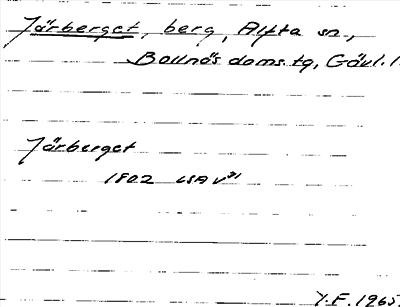 Järberget, berg, Alfta sn.,
Bollnäs doms.tg, Gävl.l.
Järberget
1802 LSA V31
Y.F. 1965